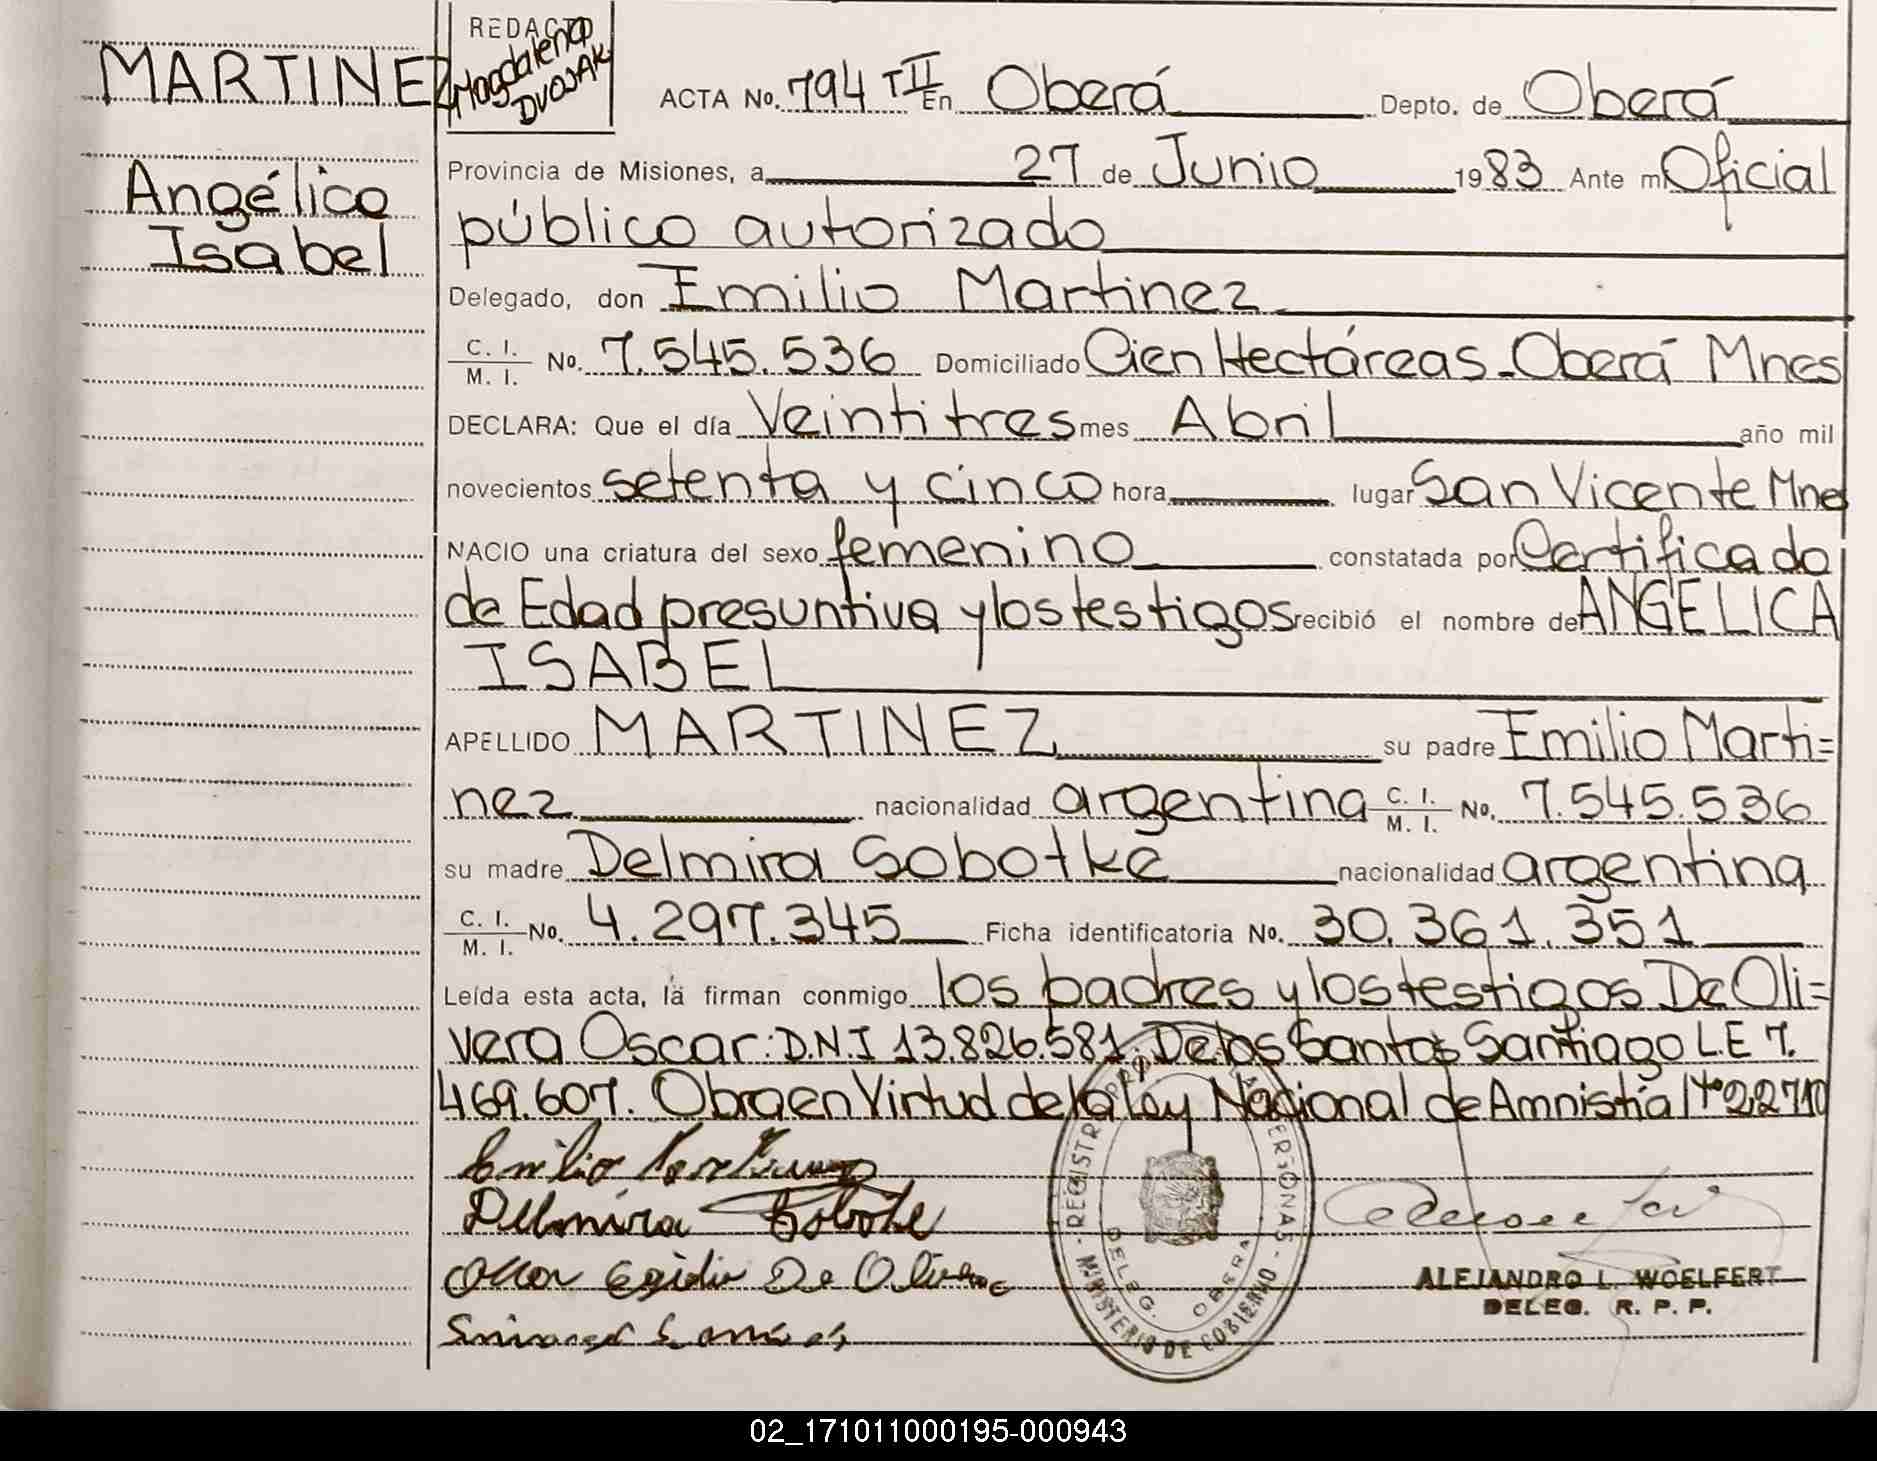 MARTINEZ
Angélica
Isabel
REDACTO
Magdalena
DVOJAK
ACTA No. 794 TII En Oberá Depto. de Oberá
Provincia de Misiones, a 27 de Junio 1983 Ante mi Oficial
público autorizado
Delegado, don Emilio Martinez
C. I. / M. I. No. 7.545.536 Domiciliado Cien Hectáreas - Oberá Mnes
DECLARA: Que el día Veintitres mes Abril año mil
novecientos setenta y cinco hora lugar San Vicente Mnes
NACIO una criatura del sexo femenino constatada por Certificado
de Edad presuntiva y los testigos recibió el nombre de ANGELICA
ISABEL
APELLIDO MARTINEZ su padre Emilio Marti=
nez nacionalidad argentina C. I. / M. I. No. 7.545.536
su madre Delmira Sobotke nacionalidad argentina
C. I. / M. I. No. 4.297.345 Ficha identificatoria No. 30.361.351
Leída esta acta, la firman conmigo los padres y los testigos De Oli=
vera Oscar: D.N.I 13.826.581; De los Santos Santiago L.E 7.
469.607. Obra en Virtud de la Ley Nacional de Amnistía Nº 22710
Emilio Martinez
Delmira Sobotke
Oscar Egidio De Olivera
REGISTRO PERSONAS - MINISTERIO DE GOBIERNO -
DELEG. OBERA
ALEJANDRO L. WOELFERT
DELEG. R. P. P.
02_171011000195-000943